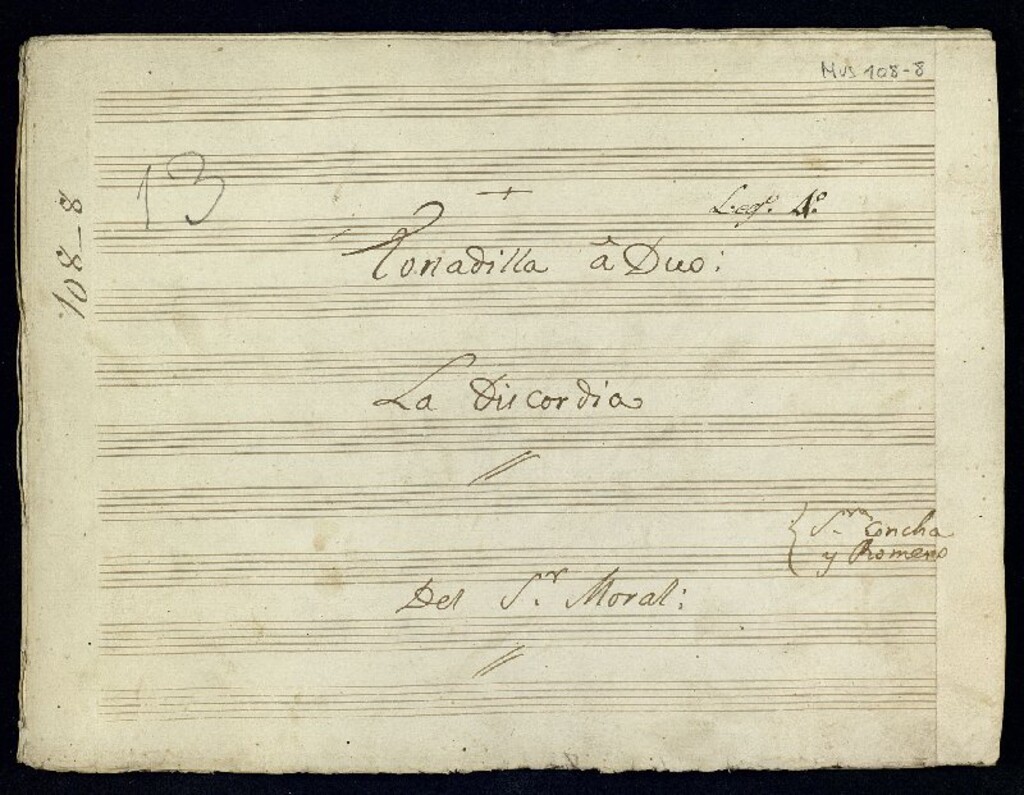 Mus 108-8
13
108-8
Leg.º 4.º
Tonadilla â Duo:
La Discordia
S.ra Concha
y Romero
Del S.r Moral: